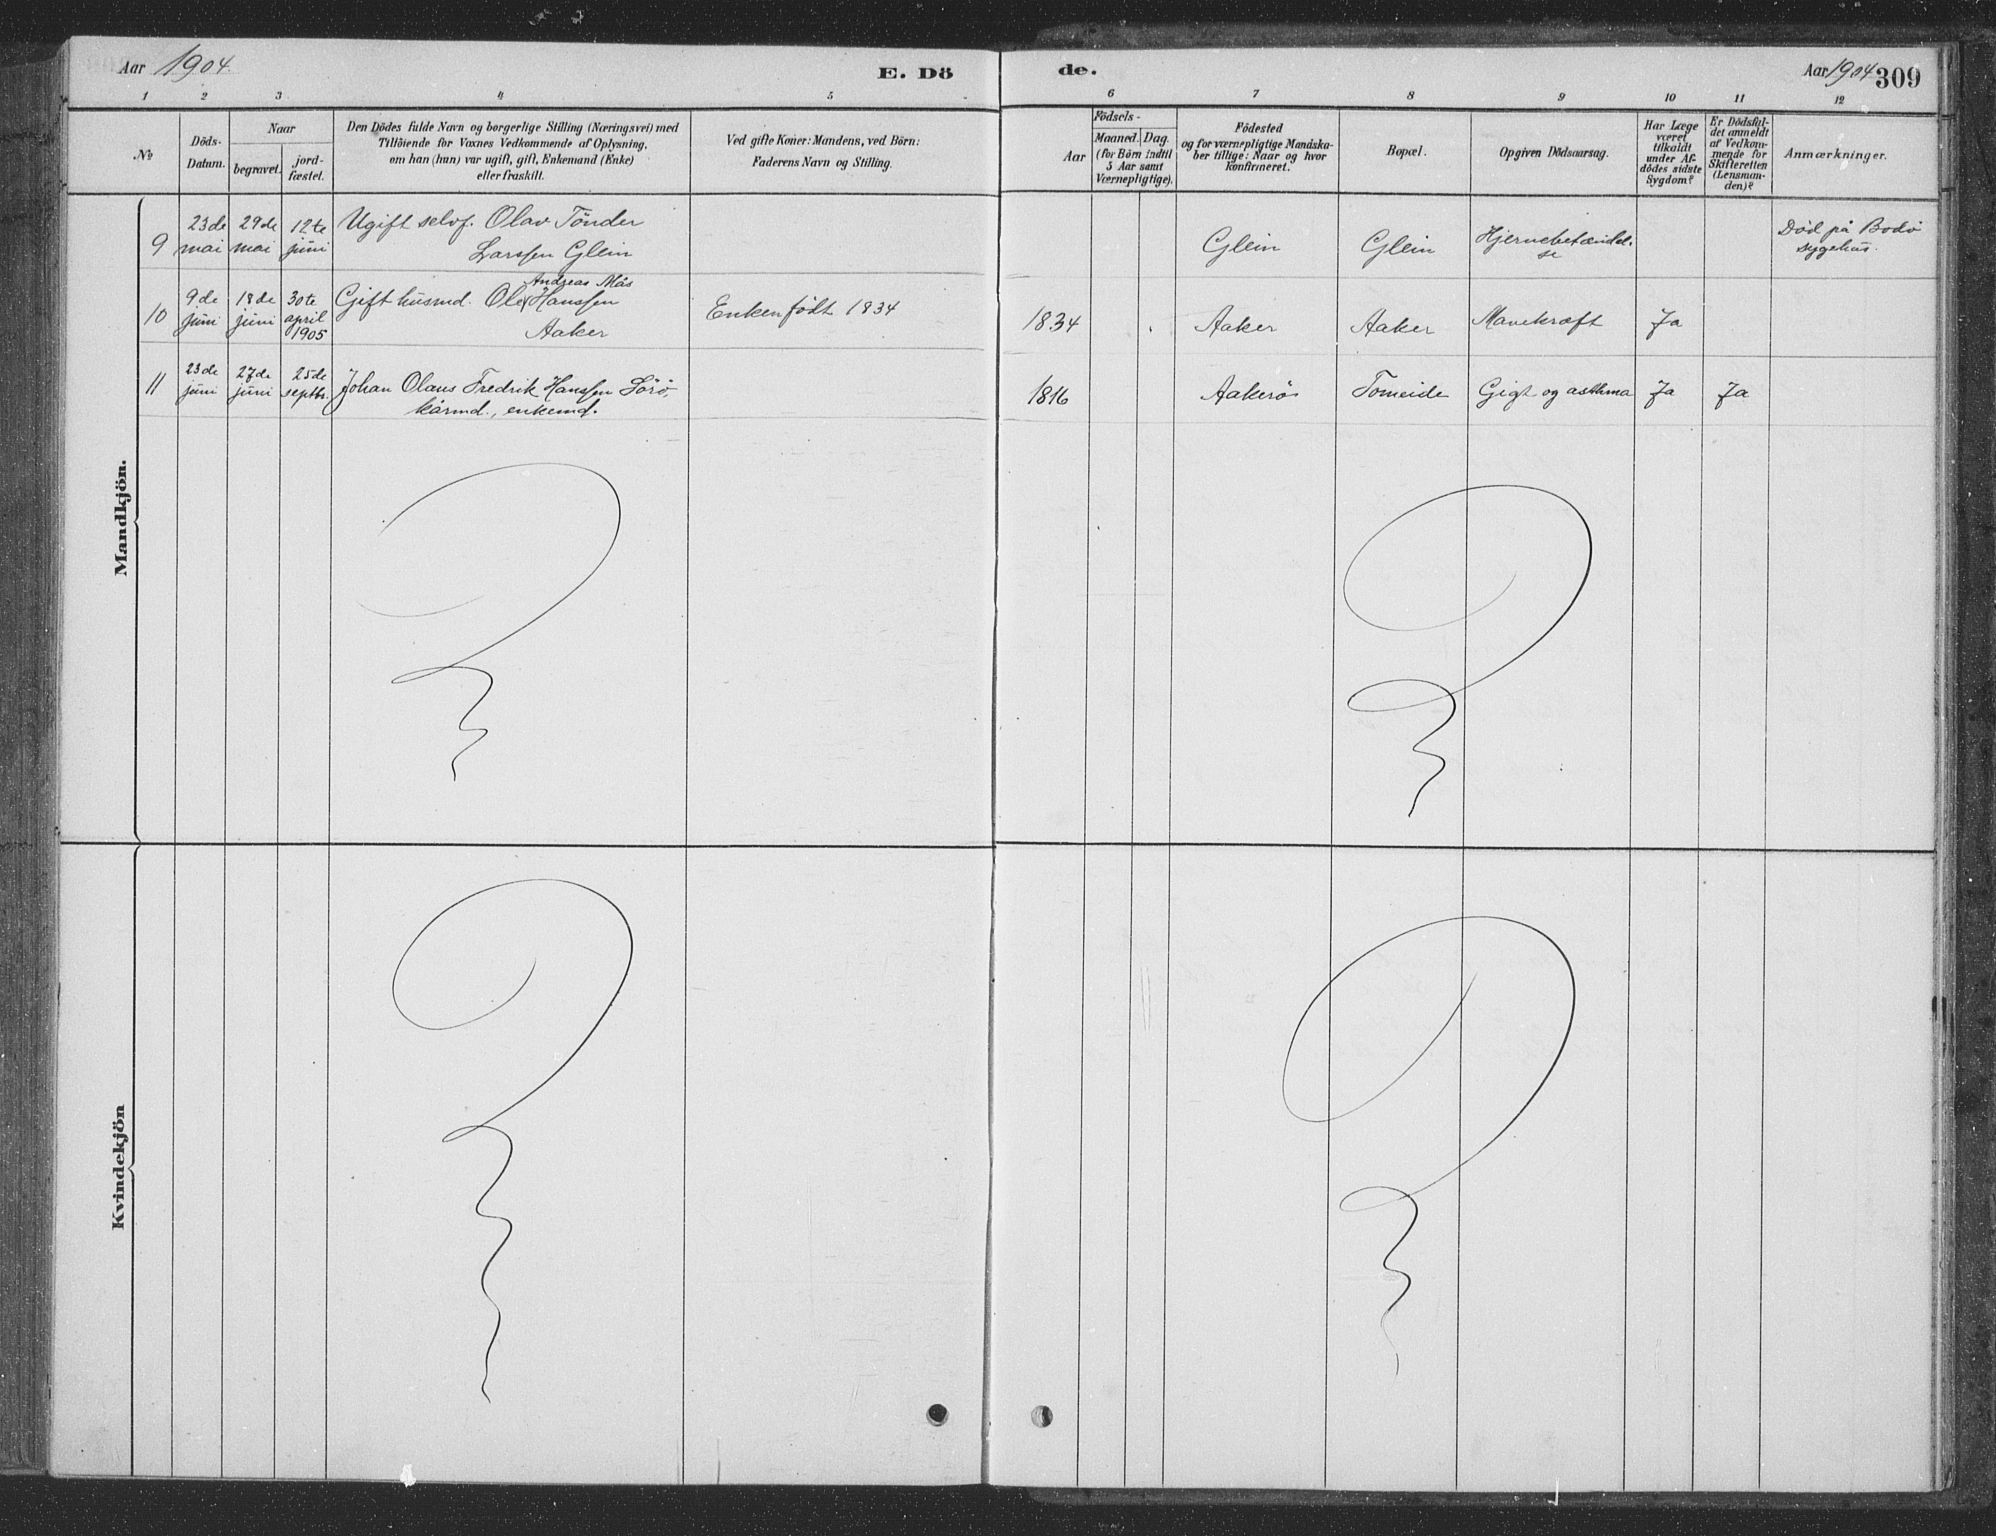 Aar 1904.
E. Dö
de.
Aar 1904
309
1 2 3 4 5 6 7 8 9 10 11 12
No
Döds-
Datum.
Naar
begravet.
jord-
fæstet.
Den Dödes fulde Navn og borgerlige Stilling (Næringsvei) med
Tilföiende for Voxnes Vedkommende af Oplysning,
om han (hun) var ugift, gift, Enkemand (Enke)
eller fraskilt.
Ved gifte Koner: Mandens, ved Börn:
Faderens Navn og Stilling.
Födsels-
Aar
Maaned. Dag.
(for Börn indtil
5 Aar samt
Værnepligtige).
Födested
og for værnepligtige Mandska-
ber tillige: Naar og hvor
konfirmeret.
Bopæl.
Opgiven Dödsaarsag.
Har Læge
været
tilkaldt
under Af-
dödes sidste
Sygdom?
Er Dödsfal-
det anmeldt
af Vedkom-
mende for
Skifteretten
(Lensman-
den)?
Anmærkninger.
Mandkjön.
9
23de
mai
29de
mai
12te
juni
Ugift selvf. Olav Tönder
Larssen Glein
Glein
Glein
Hjernebetændel-
se
Död på Bodö
sygehus.
10
9de
juni
18de
juni
30te
april
1905
Andreas Mås
Gift husmd. Ole Hanssen
Aaker
Enken födt 1834
1834
Aaker
Aaker
Mavekræft
Ja
11
23de
juni
27de
juni
25de
septbr.
Johan Olaus Fredrik Hanssen Sörö,
kårmd., enkemd.
1816
Aakerö
Tomeide
Gigt og asthma
Ja
Ja
Kvindekjön